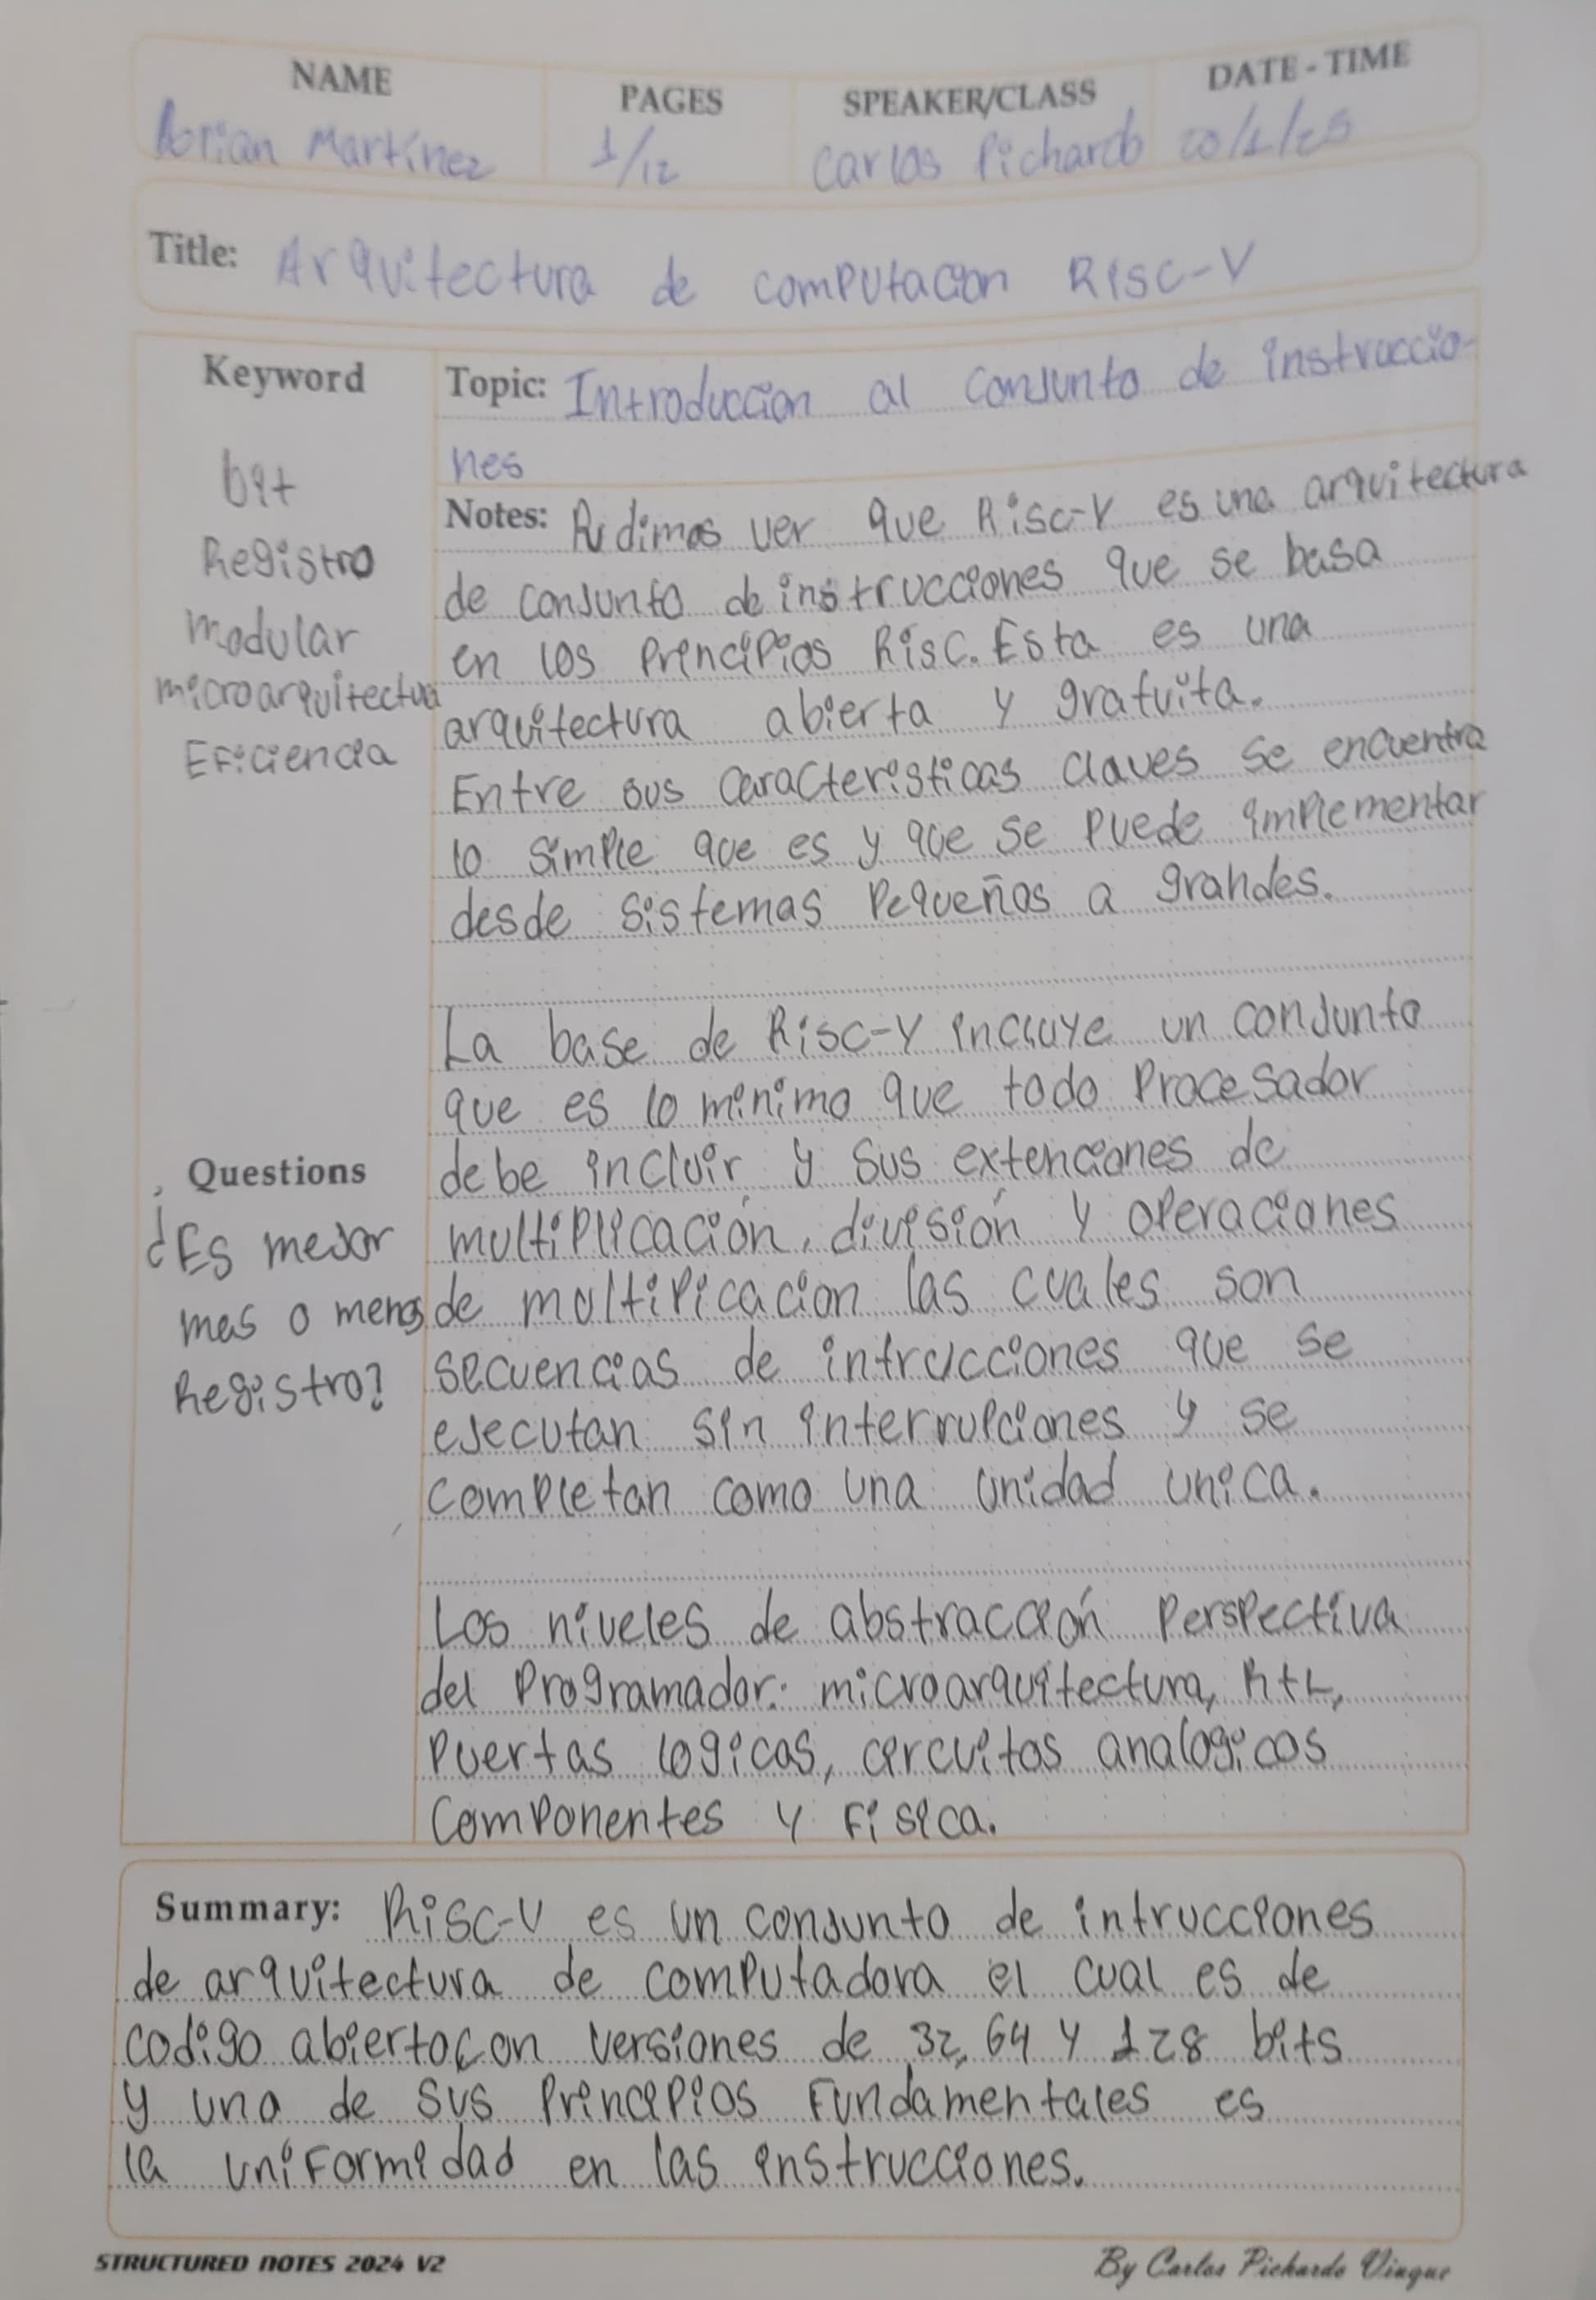 NAME PAGES SPEAKER/CLASS DATE - TIME
Adrian Martínez 1/12 Carlos Pichardo 20/1/25
Title: Arquitectura de computacion Risc-V
Keyword
bit
Registro
modular
microarquitectura
Eficiencia
Topic: Introduccion al conjunto de instruccio-
nes
Notes: Pudimos ver que Risc-V es una arquitectura
de conjunto de instrucciones que se basa
en los principios Risc. Esta es una
arquitectura abierta y gratuita.
Entre sus caracteristicas claves se encuentra
lo simple que es y que se puede implementar
desde sistemas pequeños a grandes.
La base de Risc-V incluye un conjunto
que es lo minimo que todo procesador
debe incluir y sus extenciones de
multiplicación, división y operaciones
de multipicacion las cuales son
secuencias de intrucciones que se
ejecutan sin interrupciones y se
completan como una unidad unica.
Los niveles de abstracción perspectiva
del programador: microarquitectura, RtL,
puertas logicas, circuitos analogicos
componentes y fisica.
Questions
¿Es mejor
mas o menos
Registro?
Summary: Risc-V es un conjunto de intrucciones
de arquitectura de computadora el cual es de
codigo abierto con versiones de 32, 64 y 128 bits
y uno de sus principios fundamentales es
la uniformidad en las instrucciones.
STRUCTURED NOTES 2024 V2 By Carlos Pichardo Viuque